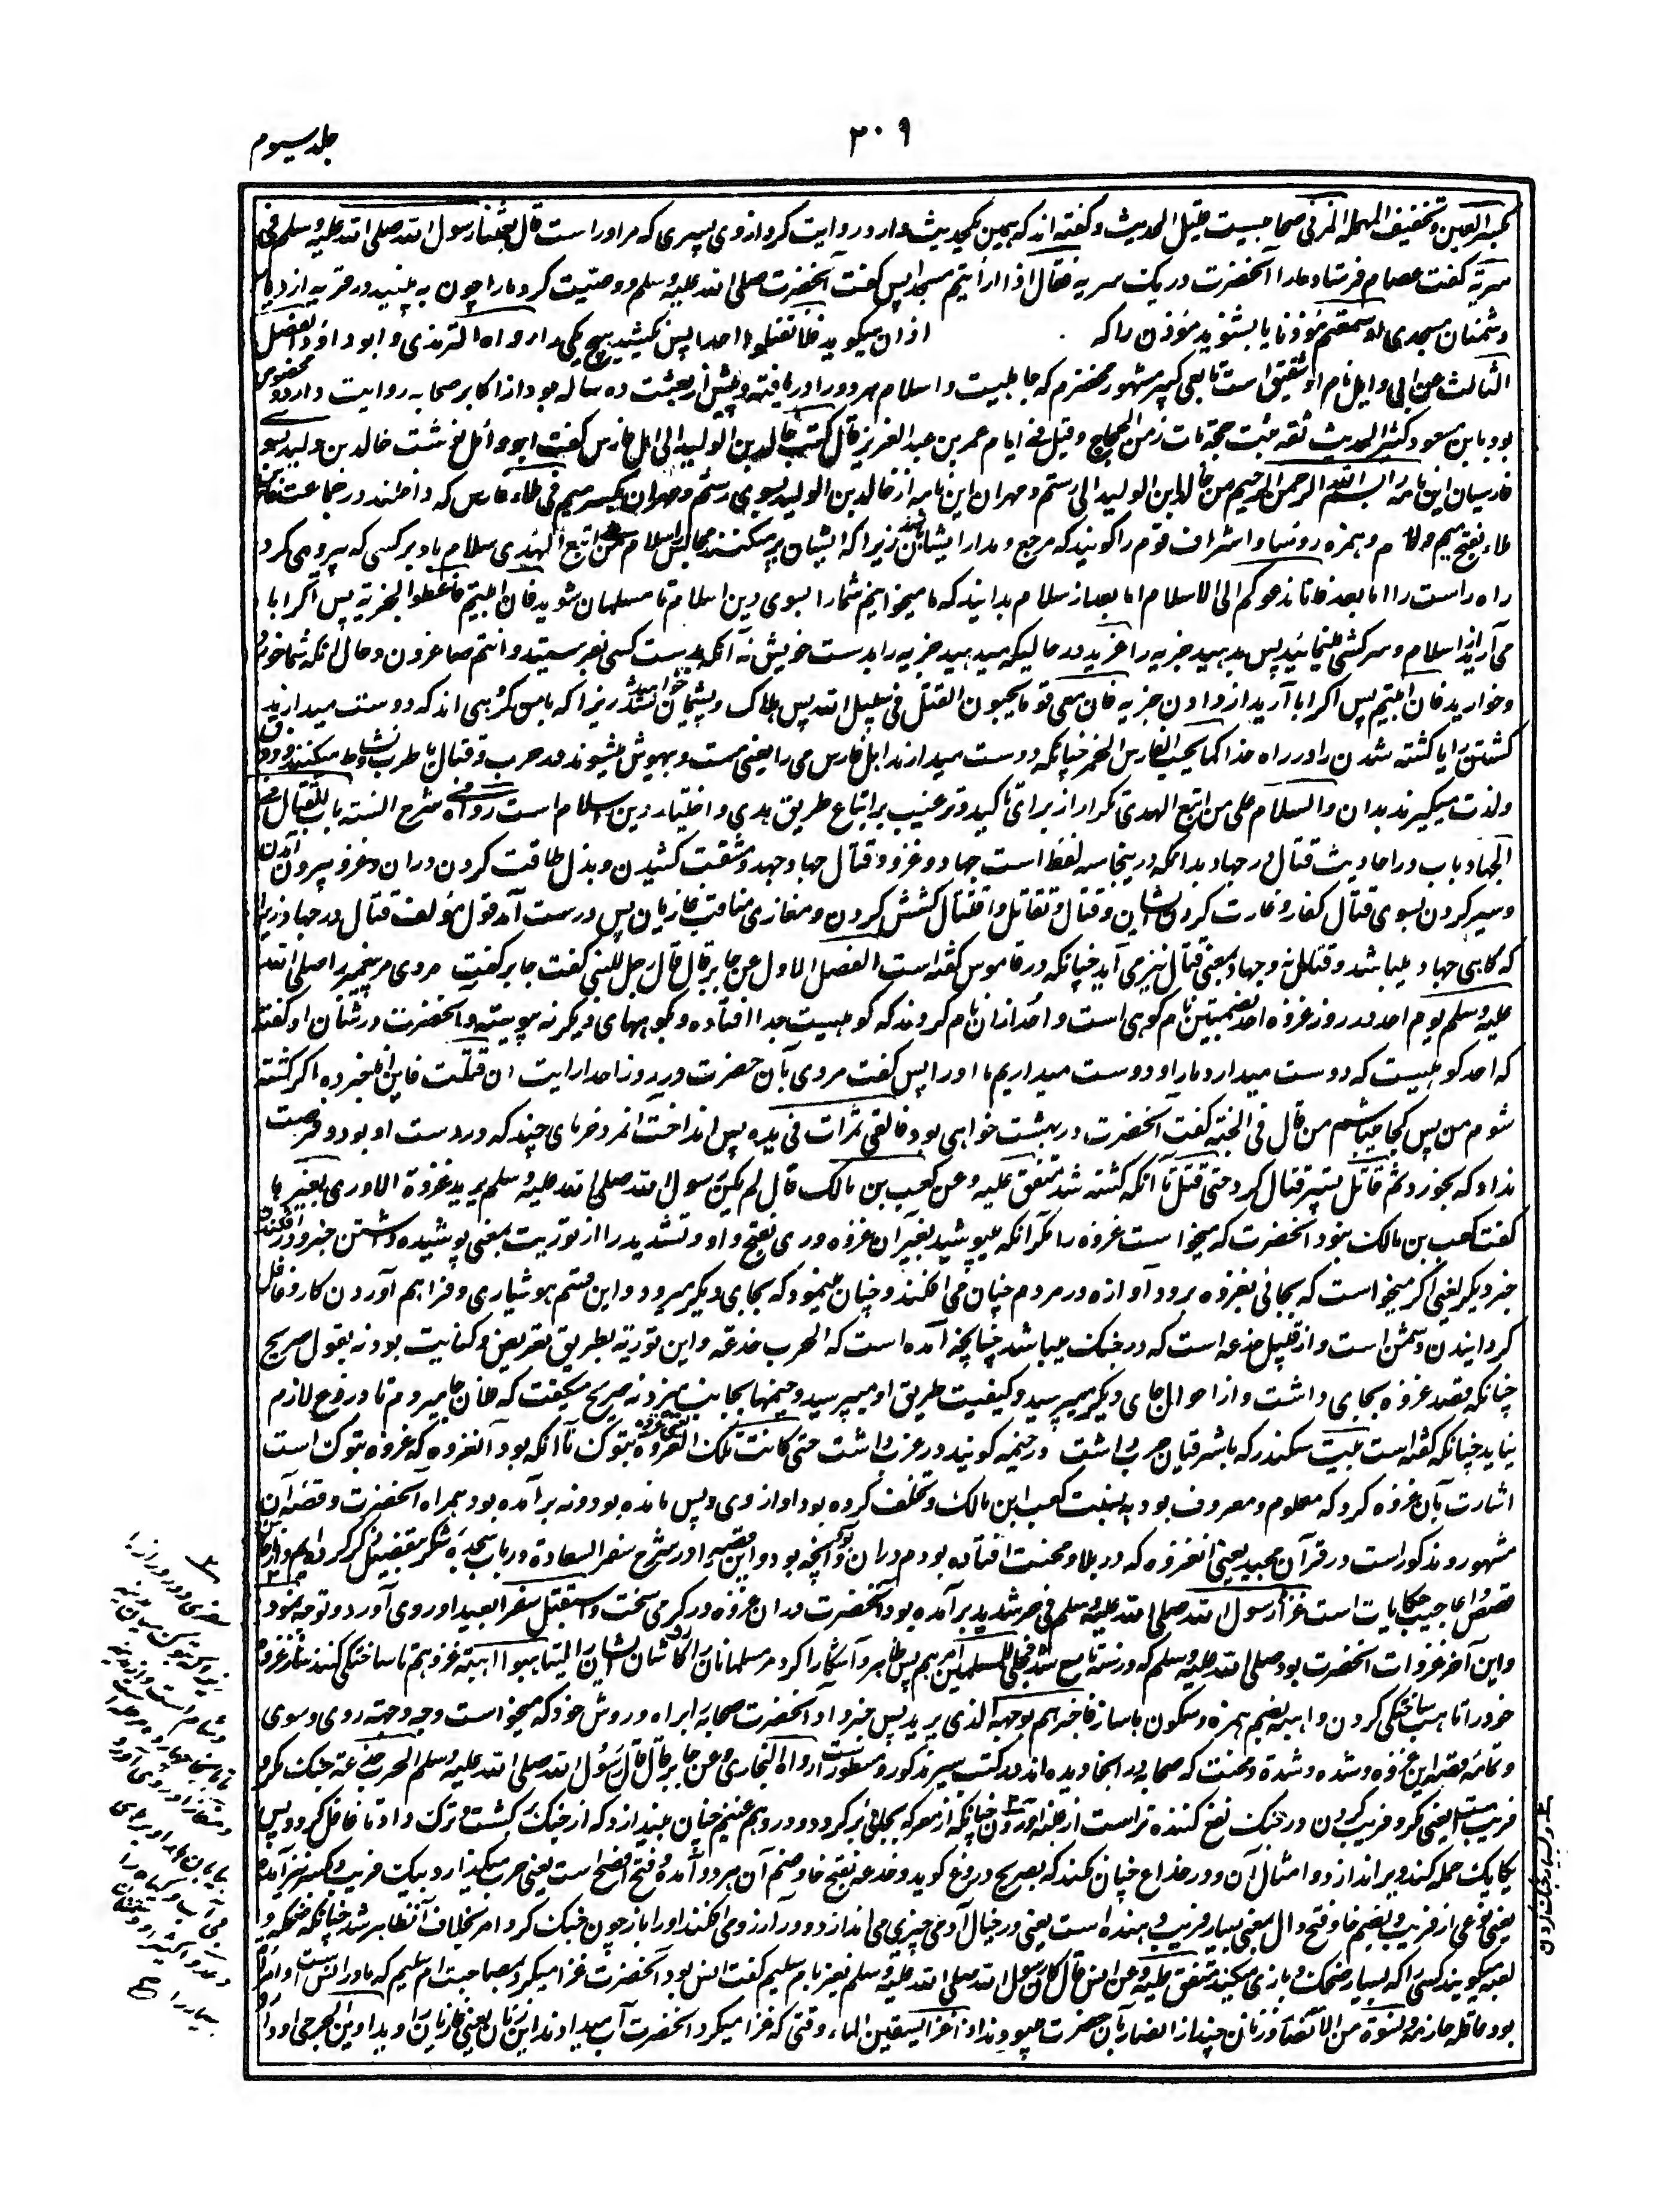 جلد سیوم
۳۰۹
بکسر العین و تخفیف المهمله المزنی صحابیست قلیل الحدیث و گفته اند که همین یکحدیث دارد روایت کرد از وی پسری که مر او راست قال بعثنا رسول الله صلی الله علیه وسلم فی
سریّة گفت عصام فرستاد ما را آنحضرت در یک سریه فقال اذا رأیتم مسجدا پس گفت آنحضرت صلی الله علیه وسلم و وصیت کرد ما را چون به بینید در قریه از دیار
دشمنان مسجدی او سمعتم مؤذنا یا بشنوید مؤذن را که اذان میگوید فلا تقتلوا احدا پس مکشید هیچ یکی را رواه الترمذی و ابو داؤد الفصل
الثالث عن ابی وایل نام او شقیق است تابعی کبیر مشهور مخضرم که جاهلیت و اسلام هر دو را دریافته و پیش از بعثت ده ساله بود از اکابر صحابه روایت دارد و مخصوص
بود بابن مسعود کثیر الحدیث ثقه ثبت حجة مات زمن الحجاج و قیل فی ایام عمر بن عبد العزیز قال کتب خالد بن الولید الی اهل فارس گفت ابو وائل نوشت خالد بن ولید بسوی
فارسیان این نامه را بسم الله الرحمن الرحیم من خالد بن الولید الی رستم و مهران این نامه از خالد بن الولید بسوی رستم و مهران بکسر میم فی ملاء فارس که داخلند در جماعت
ملاء بفتح میم و لام و همزه رؤسا و اشراف قوم را گویند که مرجع و مدار ایشانند زیرا که ایشان پر میکنند مجالس را سلام علی من اتبع الهدی سلام باد بر کسی که پیروی کرد
راه راست را اما بعد فانا ندعوکم الی الاسلام اما بعد از سلام بدانید که ما میخوانیم شما را بسوی دین اسلام تا مسلمان شوید فان ابیتم فاعطوا الجزیة پس اگر ابا
می آرید از اسلام و سرکشی مینمائید پس بدهید جزیه را عن ید در حالیکه میدهید جزیه را بدست خویش نه آنکه بدست کسی بفرستید و انتم صاغرون و حال آنکه شما خوار
و خوارید فان ابیتم پس اگر ابا آرید از دادن جزیه فان معی قوما یحبون القتل فی سبیل الله پس هلاک و پشیمان خواهید شد زیرا که با من گروهی اند که دوست میدارند
کشتن را یا کشته شدن را در راه خدا کما یحب الفارس الخمر چنانکه دوست میدارند اهل فارس می را یعنی مست و بیهوش میشوند در حرب و قتال یا طرب و نشاط میکنند و ذوق
و لذت میگیرند بدان والسلام علی من اتبع الهدی تکرار از برای تاکید و ترغیب بر اتباع طریق هدی و اختیار دین اسلام است رواه فی شرح السنه باب القتال فی
الجهاد باب در احادیث قتال در جهاد بدانکه درینجا سه لفظ است جهاد و غزو و قتال جهاد جهد و مشقت کشیدن و بذل طاقت کردن دران و غزو بیرون آمدن
و سیر کردن بسوی قتال کفار و غارت کردن ایشان و قتال و تقاتل و اقتتال کشش کردن و مغازی مناقب غازیان پس درست آمد قول مؤلف قتال در جهاد زیرا
که گاهی جهاد میباشد و قتال نه و جهاد بمعنی قتال نیز می آید چنانکه در قاموس گفته است الفصل الاول عن جابر قال قال رجل للنبی گفت جابر گفت مردی مر پیغمبر را صلی الله
علیه وسلم یوم احد در روز غزوه احد بضمتین نام کوهی است و احد ازان نام کردند که کوهیست جدا افتاده و بکوههای دیگر نه پیوسته و آنحضرت در شان او گفته
که احد کوهیست که دوست میدارد ما را و دوست میداریم ما او را پس گفت مردی بآن حضرت در روز احد ارأیت ان قتلت فاین انا خبر ده اگر کشته
شوم من پس کجا میباشم من قال فی الجنة گفت آنحضرت در بهشت خواهی بود فالقی تمرات فی یده پس انداخت آنمرد خرمای چند که در دست او بود و فرصت
نداد که بخورد ثم قاتل پستر قتال کرد حتی قتل تا آنکه کشته شد متفق علیه و عن کعب بن مالک قال لم یکن رسول الله صلی الله علیه وسلم یرید غزوة الا وری بغیرها
گفت کعب بن مالک نبود آنحضرت که میخواست غزوه را مگر آنکه میپوشید بغیر آن غزوه وری بفتح واو و تشدید را از توریت بمعنی پوشیده داشتن خبر و در افگندن
خبر دیگر یعنی اگر میخواست که بجائی بغزوه برود آوازه در مردم چنان می افگند و چنان مینمود که بجای دیگر میرود و این قسم هوشیاری و فراهم آوردن کار و غافل
گردانیدن دشمن است و از قبیل خدعه است که در جنگ میباشد چنانچه آمده است که الحرب خدعة و این توریه بطریق تعریض و کنایت بود نه بقول صریح
چنانکه قصد غزوه بجای داشت و از احوال جای دیگر میپرسید و کیفیت طریق او میپرسید و خیمها بجانب میزد نه صریح میگفت که فلان جا میروم تا دروغ لازم
نیاید چنانکه گفته است بیت سکندر که با شرقیان حرب داشت در خیمه گویند در غرب داشت حتی کانت تلک الغزوة یعنی غزوه تبوک تا آنکه بود آنغزوه که غزوه تبوک است
اشارت بآن غزوه کرد که معلوم و معروف بود به نسبت کعب ابن مالک و تخلف کرده بود او از وی و پس مانده بود و نه برآمده بود همراه آنحضرت و قصه آن
مشهور و مذکور است در قرآن مجید یعنی آنغزوه که در بلا و محنت افتاده بودم دران و آنچه بود و این قصه را در شرح سفر السعادة در باب سجده شکر بتفصیل ذکر کرده ایم
قصص و اعاجیب حکایات است غزا رسول الله صلی الله علیه وسلم فی حر شدید برآمده بود آنحضرت دران غزوه در گرمی سخت و استقبل سفرا بعیدا و روی آورد و توجه نمود
و این آخر غزوات آنحضرت بود صلی الله علیه وسلم که در سنه تاسع شد فجلی للمسلمین امرهم پس ظاهر و آشکارا کرد مر مسلمانان را کار ایشان را لیتاهبوا اهبة غزوهم تا ساختگی کنند ساز غزوه
خود را تاهب ساختگی کردن و اهبه بضم همزه و سکون ها ساز فاخبرهم بوجهه الذی یرید پس خبر داد آنحضرت صحابه را براه و روش خود که میخواست وجه و جهة روی و سوی
و تمامه قصه این غزوه و شده و شدة و محنت که صحابه در انجا دیده اند در کتب سیر مذکور و مسطور است رواه البخاری و عن جابر قال قال رسول الله صلی الله علیه وسلم الحرب خدعة جنگ مکر و
فریب است یعنی مکر و فریب کردن در جنگ نفع کننده تر است از غلبه آوردن چنانکه از معرکه بجائی برگردد و در وهم غنیم چنان بیندازد که از جنگ برگشت و ترک داد تا غافل گردد پس
یکایک حمله کند و براندازد و امثال آن و در خداع چنان کند که بصریح دروغ گوید و خدعه بفتح خا و ضم آن هر دو آمده و فتح افصح است یعنی حرب میگذارد بیک فریب و کسر نیز آمده
یعنی نوعی از فریب و بضم خا و فتح دال بمعنی بسیار فریب دهنده است یعنی در خیال آدمی چیزی می اندازد و در آرزو می افگند او را باز چون جنگ کرد امر بخلاف آن ظاهر شد چنانکه ضحکه و
لعبه میگویند کسی را که بسیار ضحک و بازی میکند متفق علیه و عن انس قال کان رسول الله صلی الله علیه وسلم یغزو بام سلیم گفت انس بود آنحضرت غزا میکرد بمصاحبت ام سلیم که مادر انس است
بود عاقله حازمه و نسوة من الانصار و زنان چند از انصار بآن حضرت میبودند اذا غزا یسقین الماء وقتی که غزا میکرد آنحضرت آب میدادند این زنان یعنی غازیان را و یداوین الجرحی و دوا